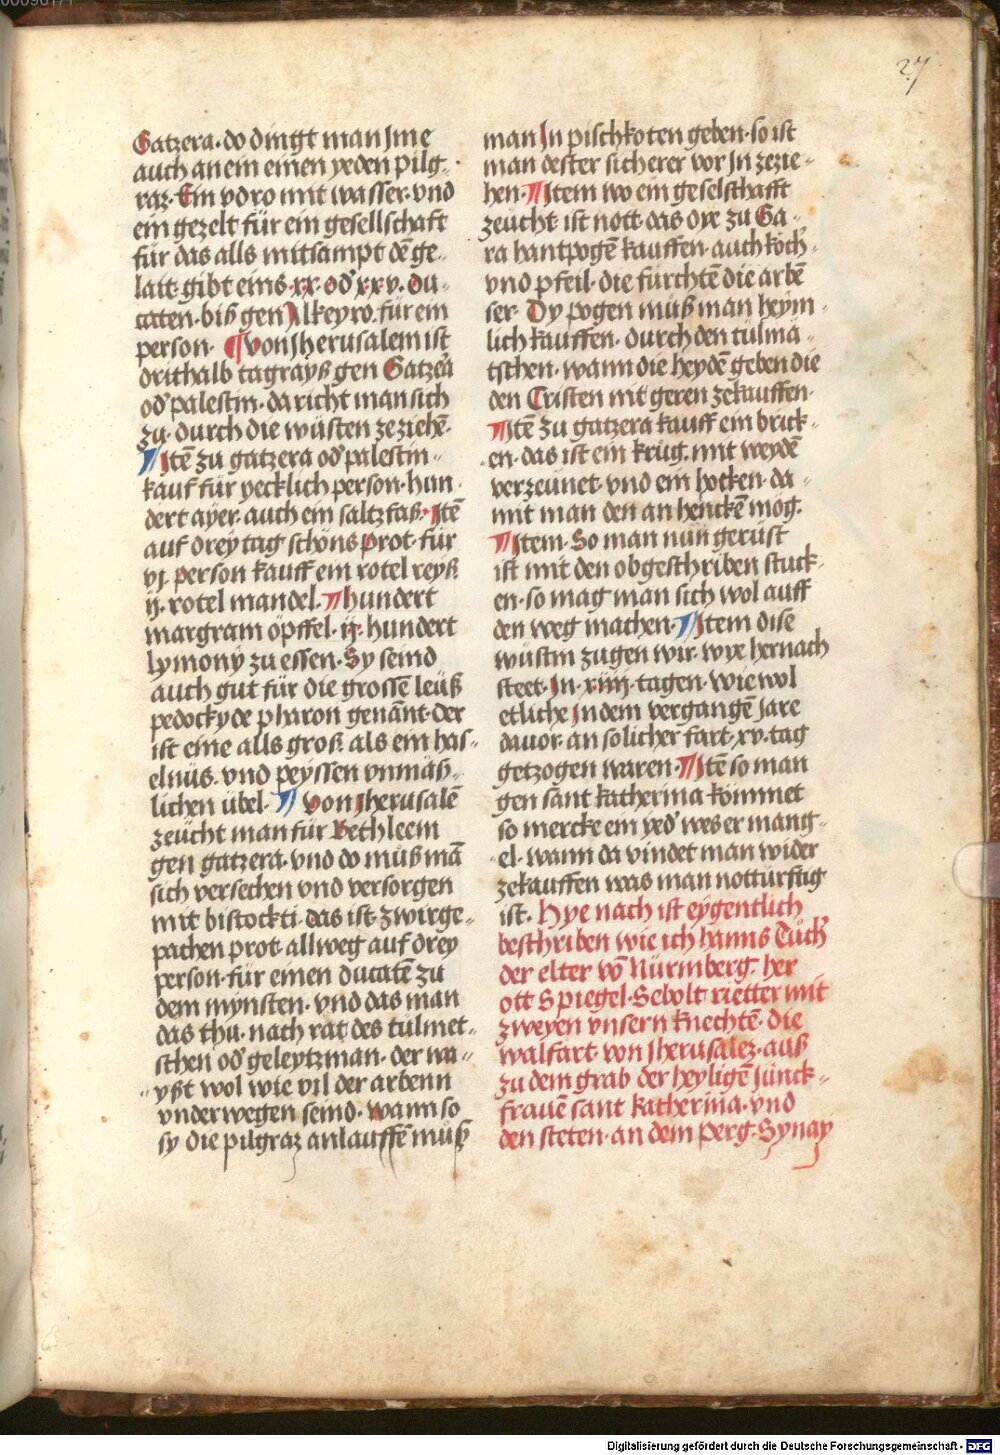 27
Gatzera · do dingt man Jme
auch an ein einen yeden pilg-
raz · Ein vdro mit wasser · vnd
ein gezelt für ein gesellschaft
für das alls mitsampt dē ge-
lait · gibt eins · xx · od' xxv · du-
caten · biß gen Alkeyro · für ein
person · ¶ von Jherusalem ist
drithalb tagrayß gen Gatze'a
od' palestin · da richt man sich
zu · durch die wüsten zeziehē ·
¶ Jtē zu gatzera od' palestin
kauf für yecklich person · hun-
dert ayer · auch ein saltzfaß · Jtē
auf drey tag schöns prot · für
vj · person kauff ein rotel reyß
ij · rotel mandel · ¶ hundert
margram öpffel · ij · hundert
lymony zu essen · Sy seind
auch gut für die grossē leüß
pedocky de pharon genānt · der
ist eine alls groß · als ein has-
elnüs · vnd peyssen vnmäß-
lichen übel · ¶ von Jherusalē
zeücht man für Bethleem
gen gatzera · vnd do müß mā
sich versechen vnd versorgen
mit bistockti · das ist zwirge-
pachen prot · allweg auf drey
person · für einen ducatē zu
dem mynsten · vnd das man
das thu · nach rat des tülmet-
schen od' geleytzman · der wa-
yßt wol wie vil der arbenn
vnderwegen seind · wann so
sy die pilgraz anlauffē müß
man Jn pischkoten geben · so ist
man dester sicherer vor Jn zezie-
hen · ¶ Jtem wo ein geselschafft
zeücht ist nott · das die zu Ga-
ra hantpogē kauffen · auch köch'
vnd pfeil · die fürchtē die arbē
ser · Dy pogen müß man heym-
lich kauffen · durch den tülmä-
tschen · wann die heydē geben die
den Cristen nit geren zekauffen ·
¶ Jtē zu gatzera kauff ein brick-
en · das ist ein krüg · mit weydē
verzeünet · vnd ein hocken · da-
mit man den an henckē mög ·
¶ Jtem · So man nün gerüst
ist mit den obgeschriben stuck-
en · so mag man sich wol auff
den weg machen · ¶ Jtem dise
wüstin zugen wir · wye hernach
steet · Jn · xiiij · tagen · wie wol
etliche Jn dem vergangē Jare
dauor · an solicher fart · xv · tag
getzogen waren · ¶ Jtē so man
gen sant katherina kömmet
so mercke ein yed' wes er mang-
el · wann da vindet man wider
zekauffen was man nottürftig
ist · Hye nach ist eygentlich
beschriben wie ich hanns Tüch'
der elter vō Nürmberg · her
ott Spiegel · Sebolt rietter mit
zweyen vnsern knechtē · die
walfart · von Jherusalez · auß
zu dem grab der heyligē Jünck-
frauē sant katherina · vnd
den steten · an dem perg · Synay
Digitalisierung gefördert durch die Deutsche Forschungsgemeinschaft - DFG